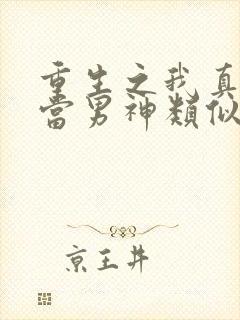 重生之我真
當男神類似
京王井